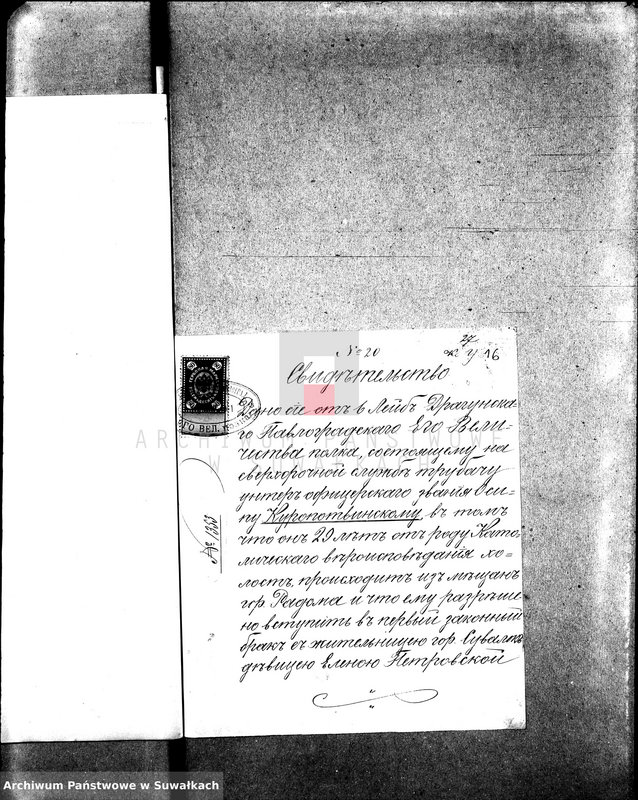 № 20
27
16
Свидѣтельство
Дано сіе отъ 6 Лейбъ Драгунска-
го Павлоградскаго Его Вели-
чества полка, состоящему на
сверхсрочной службѣ трубачу
унтеръ офицерскаго званія Оси-
пу Куропотвинскому въ томъ
что онъ 29 лѣтъ отъ роду Като
лическаго вѣроисповѣданія хо-
лостъ, происходитъ изъ мѣщанъ
гор. Радома и что ему разрѣше
но вступить въ первый законный
бракъ съ жительницею гор. Сувалокъ
дѣвицею Еленою Петровской
№ 1353
ГО ВЕЛ.
ARCHIWUM PAŃSTWOWE
W
Archiwum Państwowe w Suwałkach